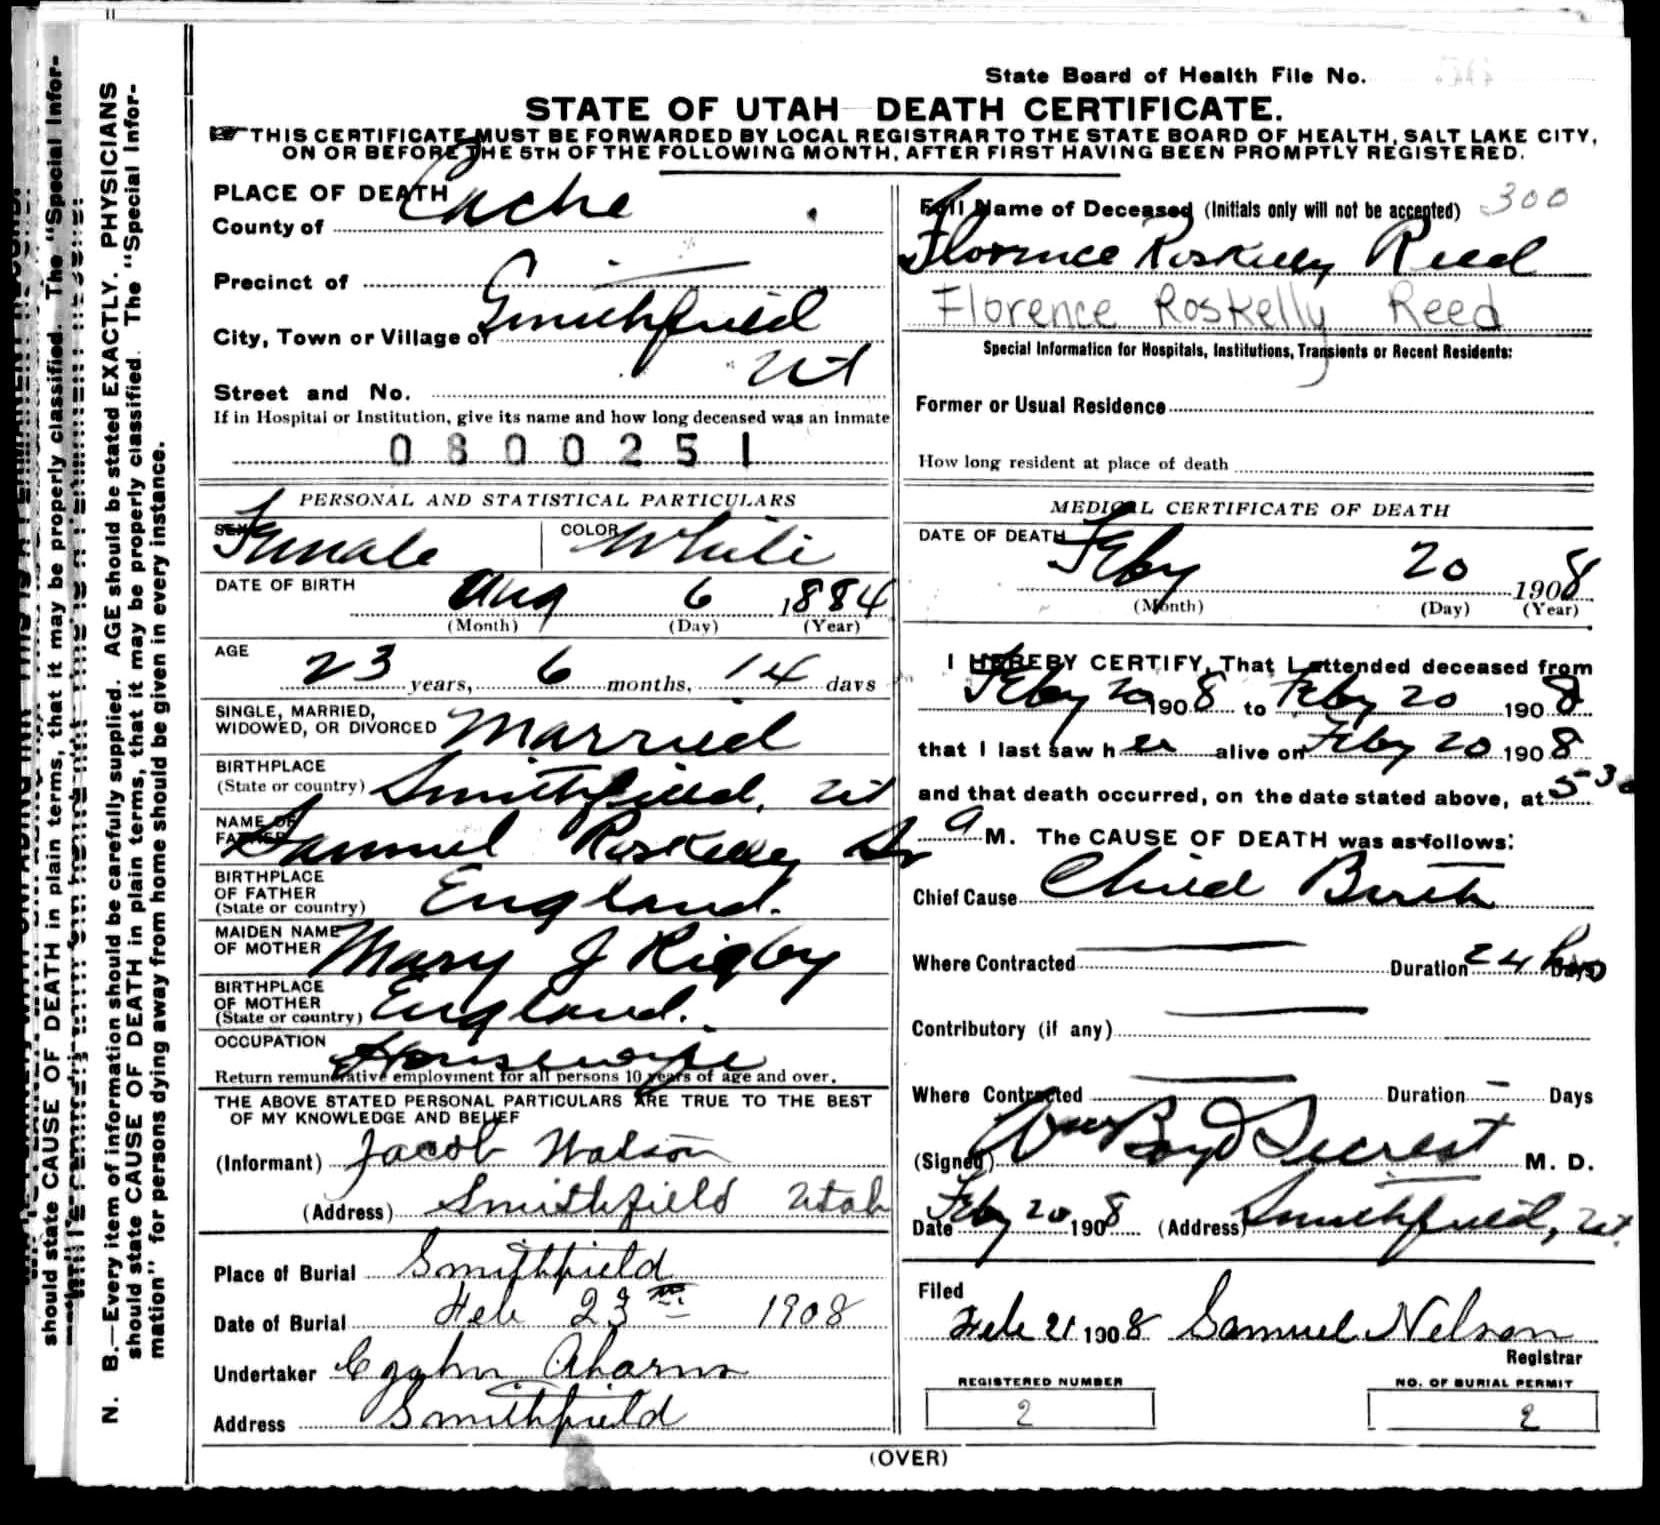 State Board of Health File No.
STATE OF UTAH DEATH CERTIFICATE.
THIS CERTIFICATE MUST BE FORWARDED BY LOCAL REGISTRAR TO THE STATE BOARD OF HEALTH, SALT LAKE CITY,
ON OR BEFORE THE 5TH OF THE FOLLOWING MONTH, AFTER FIRST HAVING BEEN PROMPTLY REGISTERED.
PLACE OF DEATH
County of Cache
Precinct of
City, Town or Village of Smithfield
Ut
Street and No.
If in Hospital or Institution, give its name and how long deceased was an inmate
0800251
PERSONAL AND STATISTICAL PARTICULARS
SEX Female COLOR White
DATE OF BIRTH Aug 6 1884
(Month) (Day) (Year)
AGE
23 years, 6 months, 14 days
SINGLE, MARRIED,
WIDOWED, OR DIVORCED Married
BIRTHPLACE
(State or country) Smithfield, Ut
NAME OF
FATHER Samuel Roskelly Sr
BIRTHPLACE
OF FATHER
(State or country) England.
MAIDEN NAME
OF MOTHER Mary J Rigby
BIRTHPLACE
OF MOTHER
(State or country) England.
OCCUPATION Housewife
Return remunerative employment for all persons 10 years of age and over.
THE ABOVE STATED PERSONAL PARTICULARS ARE TRUE TO THE BEST
OF MY KNOWLEDGE AND BELIEF
(Informant) Jacob Watson
(Address) Smithfield Utah
Place of Burial Smithfield
Date of Burial Feb 23 1908
Undertaker
Address Smithfield
Full Name of Deceased (Initials only will not be accepted) 300
Florence Roskelly Reed
Florence Roskelly Reed
Special Information for Hospitals, Institutions, Transients or Recent Residents:
Former or Usual Residence
How long resident at place of death
MEDICAL CERTIFICATE OF DEATH
DATE OF DEATH
Feby 20 1908
(Month) (Day) (Year)
I HEREBY CERTIFY, That I attended deceased from
Feby 20 1908 to Feby 20 1908
that I last saw her alive on Feby 20 1908
and that death occurred, on the date stated above, at 5 30
a M. The CAUSE OF DEATH was as follows:
Chief Cause Child Birth
Where Contracted Duration 24 hrs Days
Contributory (if any)
Where Contracted Duration Days
(Signed) Wm Boyd Secrest M. D.
Date Feby 20 1908 (Address) Smithfield, Ut.
Filed
Feb 21 1908 Samuel Nelson
Registrar
REGISTERED NUMBER
2
NO. OF BURIAL PERMIT
2
(OVER)
N. B.—Every item of information should be carefully supplied. AGE should be stated EXACTLY. PHYSICIANS
should state CAUSE OF DEATH in plain terms, that it may be properly classified. The "Special Infor-
mation" for persons dying away from home should be given in every instance.
should state CAUSE OF DEATH in plain terms, that it may be properly classified. The "Special Infor-